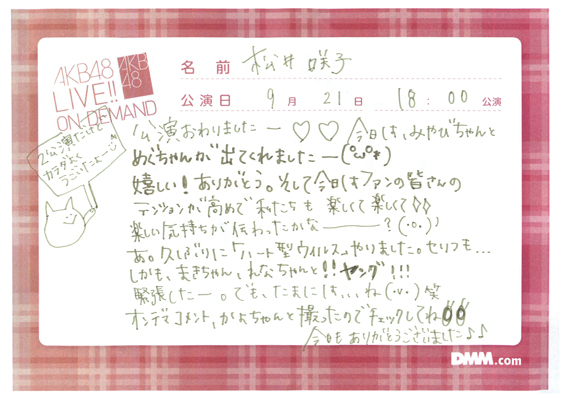 AKB48
LIVE!!
ON-DEMAND
AKB
48
名前 松井 咲子
公演日 9月 21日 18:00 公演
公演おわりましたー♡♡ 今日は、みやびちゃんと
めぐちゃんが出てくれましたー(°ω°*)
嬉しい!ありがとう。そして今日はファンの皆さんの
テンションが高めで私たちも楽しくて楽しくて♪♪
楽しい気持ちが伝わったかなー?(・o・)
あ。久しぶりに「ハート型ウイルス」やりました。セリフも...
しかも、まきちゃん、れなちゃんと!!ヤング!!!
緊張したー。でも、たまには、、、ね(・v・)笑
オンデマコメント、かよちゃんと撮ったのでチェックしてね
今日もありがとうございました♪♪
2公演だけど
カラダよく
うごいたよー
DMM.com